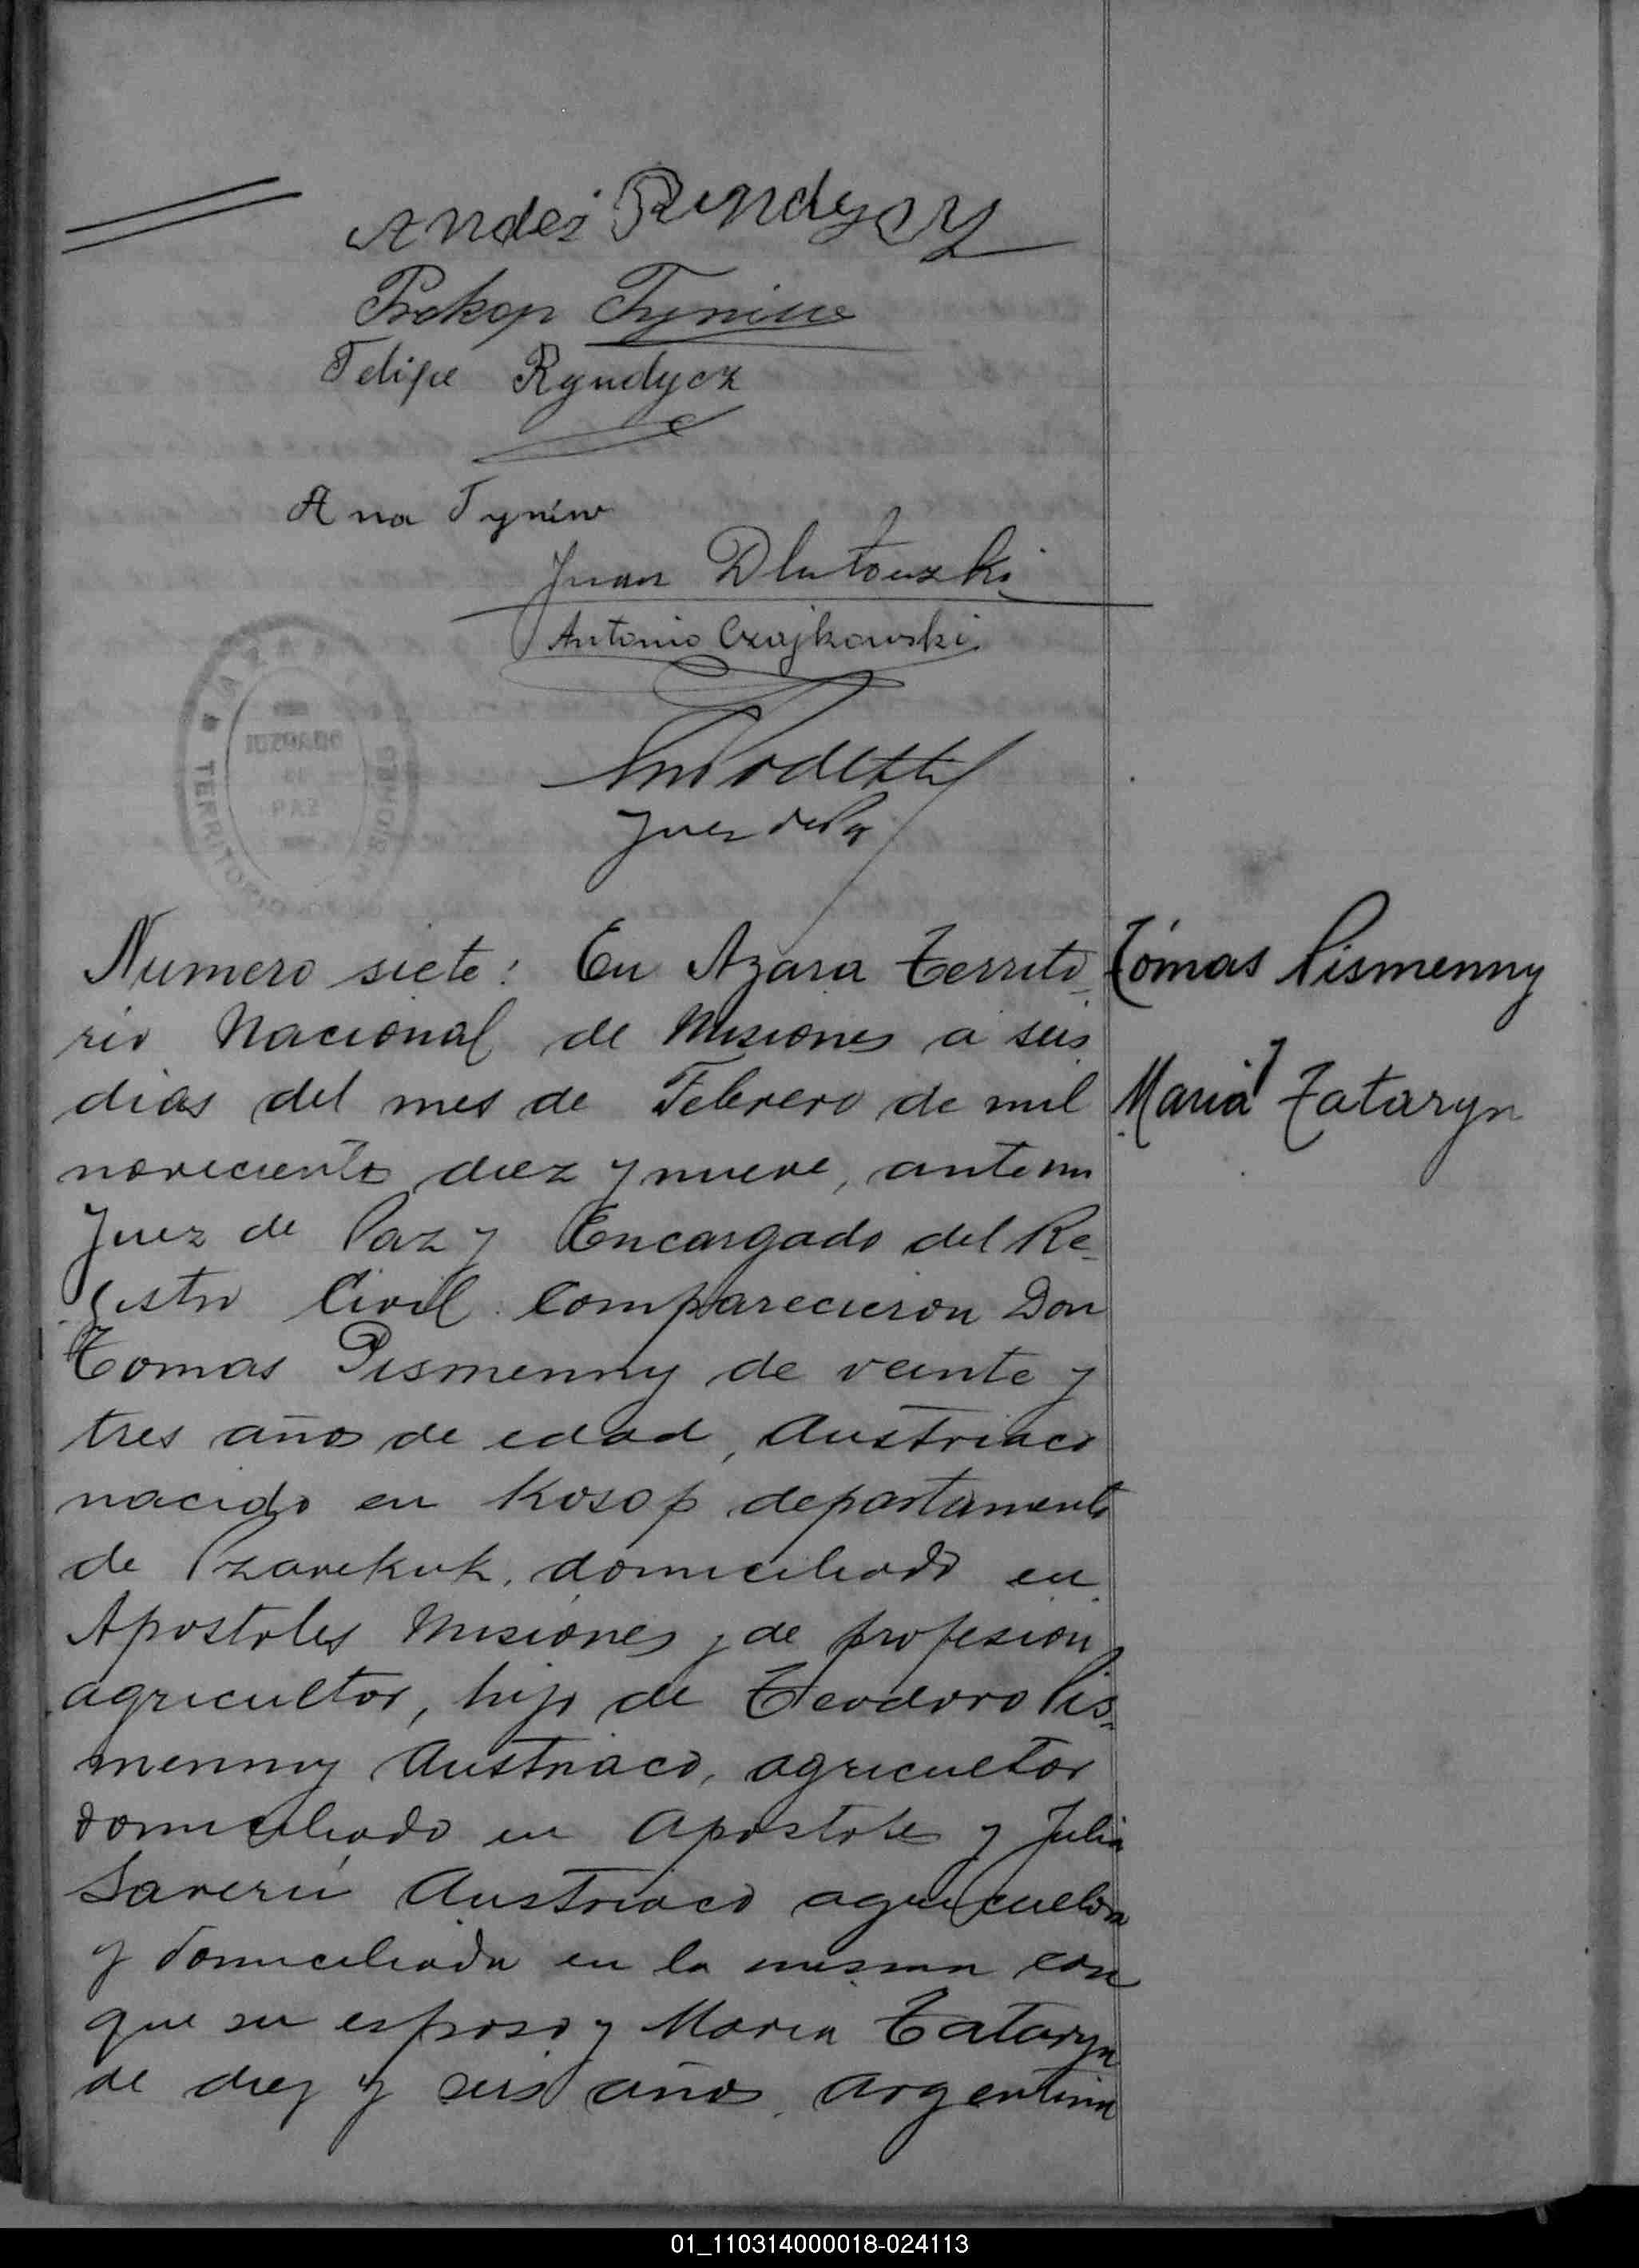 Andei Ryndycz
Prokop Tyniw
Felipe Ryndycz
Ana Tyniw
Juan Dlutouzki
Antonio Czajkowski
Juez de Paz
JUZGADO
DE
PAZ
TERRITORIO
MISIONES
Numero siete: En Azara Territo-
rio Nacional de Misiones a seis
dias del mes de Febrero de mil
noveciento diez y nueve, ante mi
Juez de Paz y Encargado del Re-
gistro Civil. Comparecieron Don
Tomas Pismenny de veinte y
tres años de edad, Austriaco
nacido en Kosop departamento
de domiciliado en
Apostoles Misiones, de profesion
agricultor, hijo de Teodoro Pis-
menny Austriaco, agricultor
domiciliado en Apostole y Julia
Austriaco agricultora
y domiciliada en la misma casa
que su esposo y Maria Tataryn
de diez y seis años, Argentina
Tómas Pismenny
y
Maria Tataryn
01_110314000018-024113